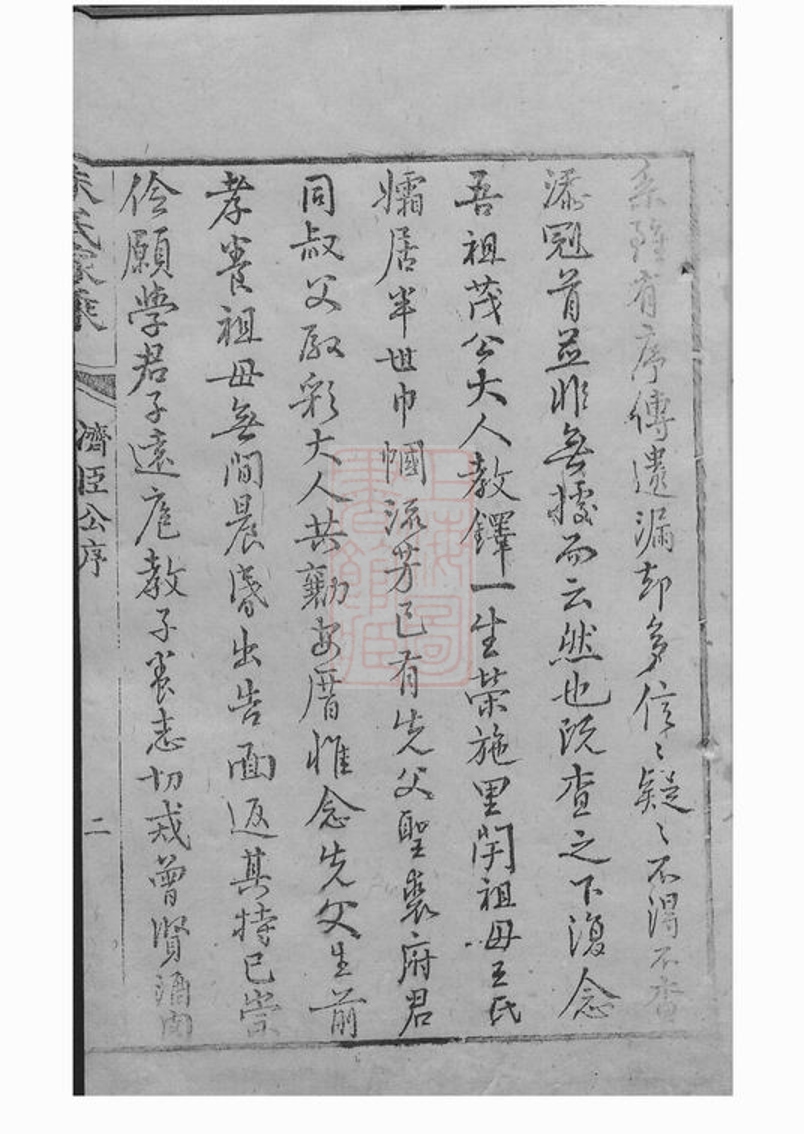 系雖有序傳遺漏却多信〻疑〻不得不查
添冠首並非無據而云然也既查之下復念
吾祖茂公大人教鐸一生榮施里閈祖母王氏
孀居半世巾幗流芳已有先父聖裘府君
同叔父殿彩大人共勷安厝惟念先父生前
孝養祖母無間晨昏出告面返其特已嘗
伶願學君子遠庖教子養志切戒曾賢酒肉
朱氏家乘
濟臣公序
二